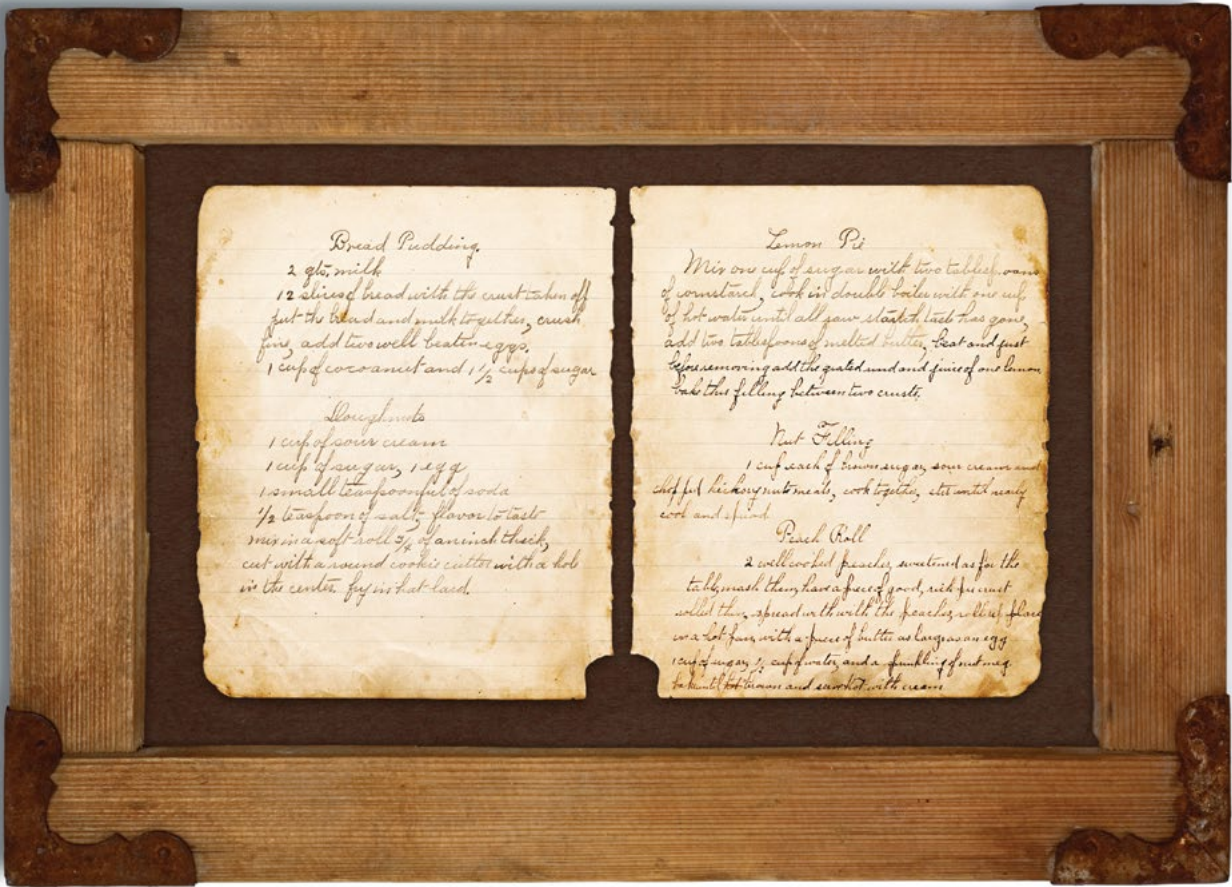 Bread Pudding.
2 qts. milk
12 slices of bread with the crust taken off
put the bread and milk together, crush
fine, add two well beaten eggs.
1 cup of cocoanut and 1 1/2 cups of sugar
Doughnuts
1 cup of sour cream
1 cup of sugar, 1 egg
1 small teaspoonful of soda
1/2 teaspoon of salt, flavor to taste
mix in a soft roll 3/4 of an inch thick,
cut with a round cookie cutter with a hole
in the center. fry in hot lard.
Lemon Pie
Mix one cup of sugar with two tablespoons
of cornstarch, cook in double boiler with one cup
of hot water until all raw starch taste has gone,
add two tablespoons of melted butter, beat and just
before removing add the grated rind and juice of one lemon
bake this filling between two crusts.
Nut Filling
1 cup each of brown sugar, sour cream and
chopped hickory nut meats, cook together, stir until nearly
cool and spread
Peach Roll
2 well cooked peaches, sweetened as for the
table, mash them, have a piece of good, rich pie crust
rolled thin, spread with the peaches, roll up, place
in a hot pan, with a piece of butter as large as an egg
1 cup of sugar, 1/2 cup of water, and a sprinkling of nutmeg.
bake until brown and serve hot with cream